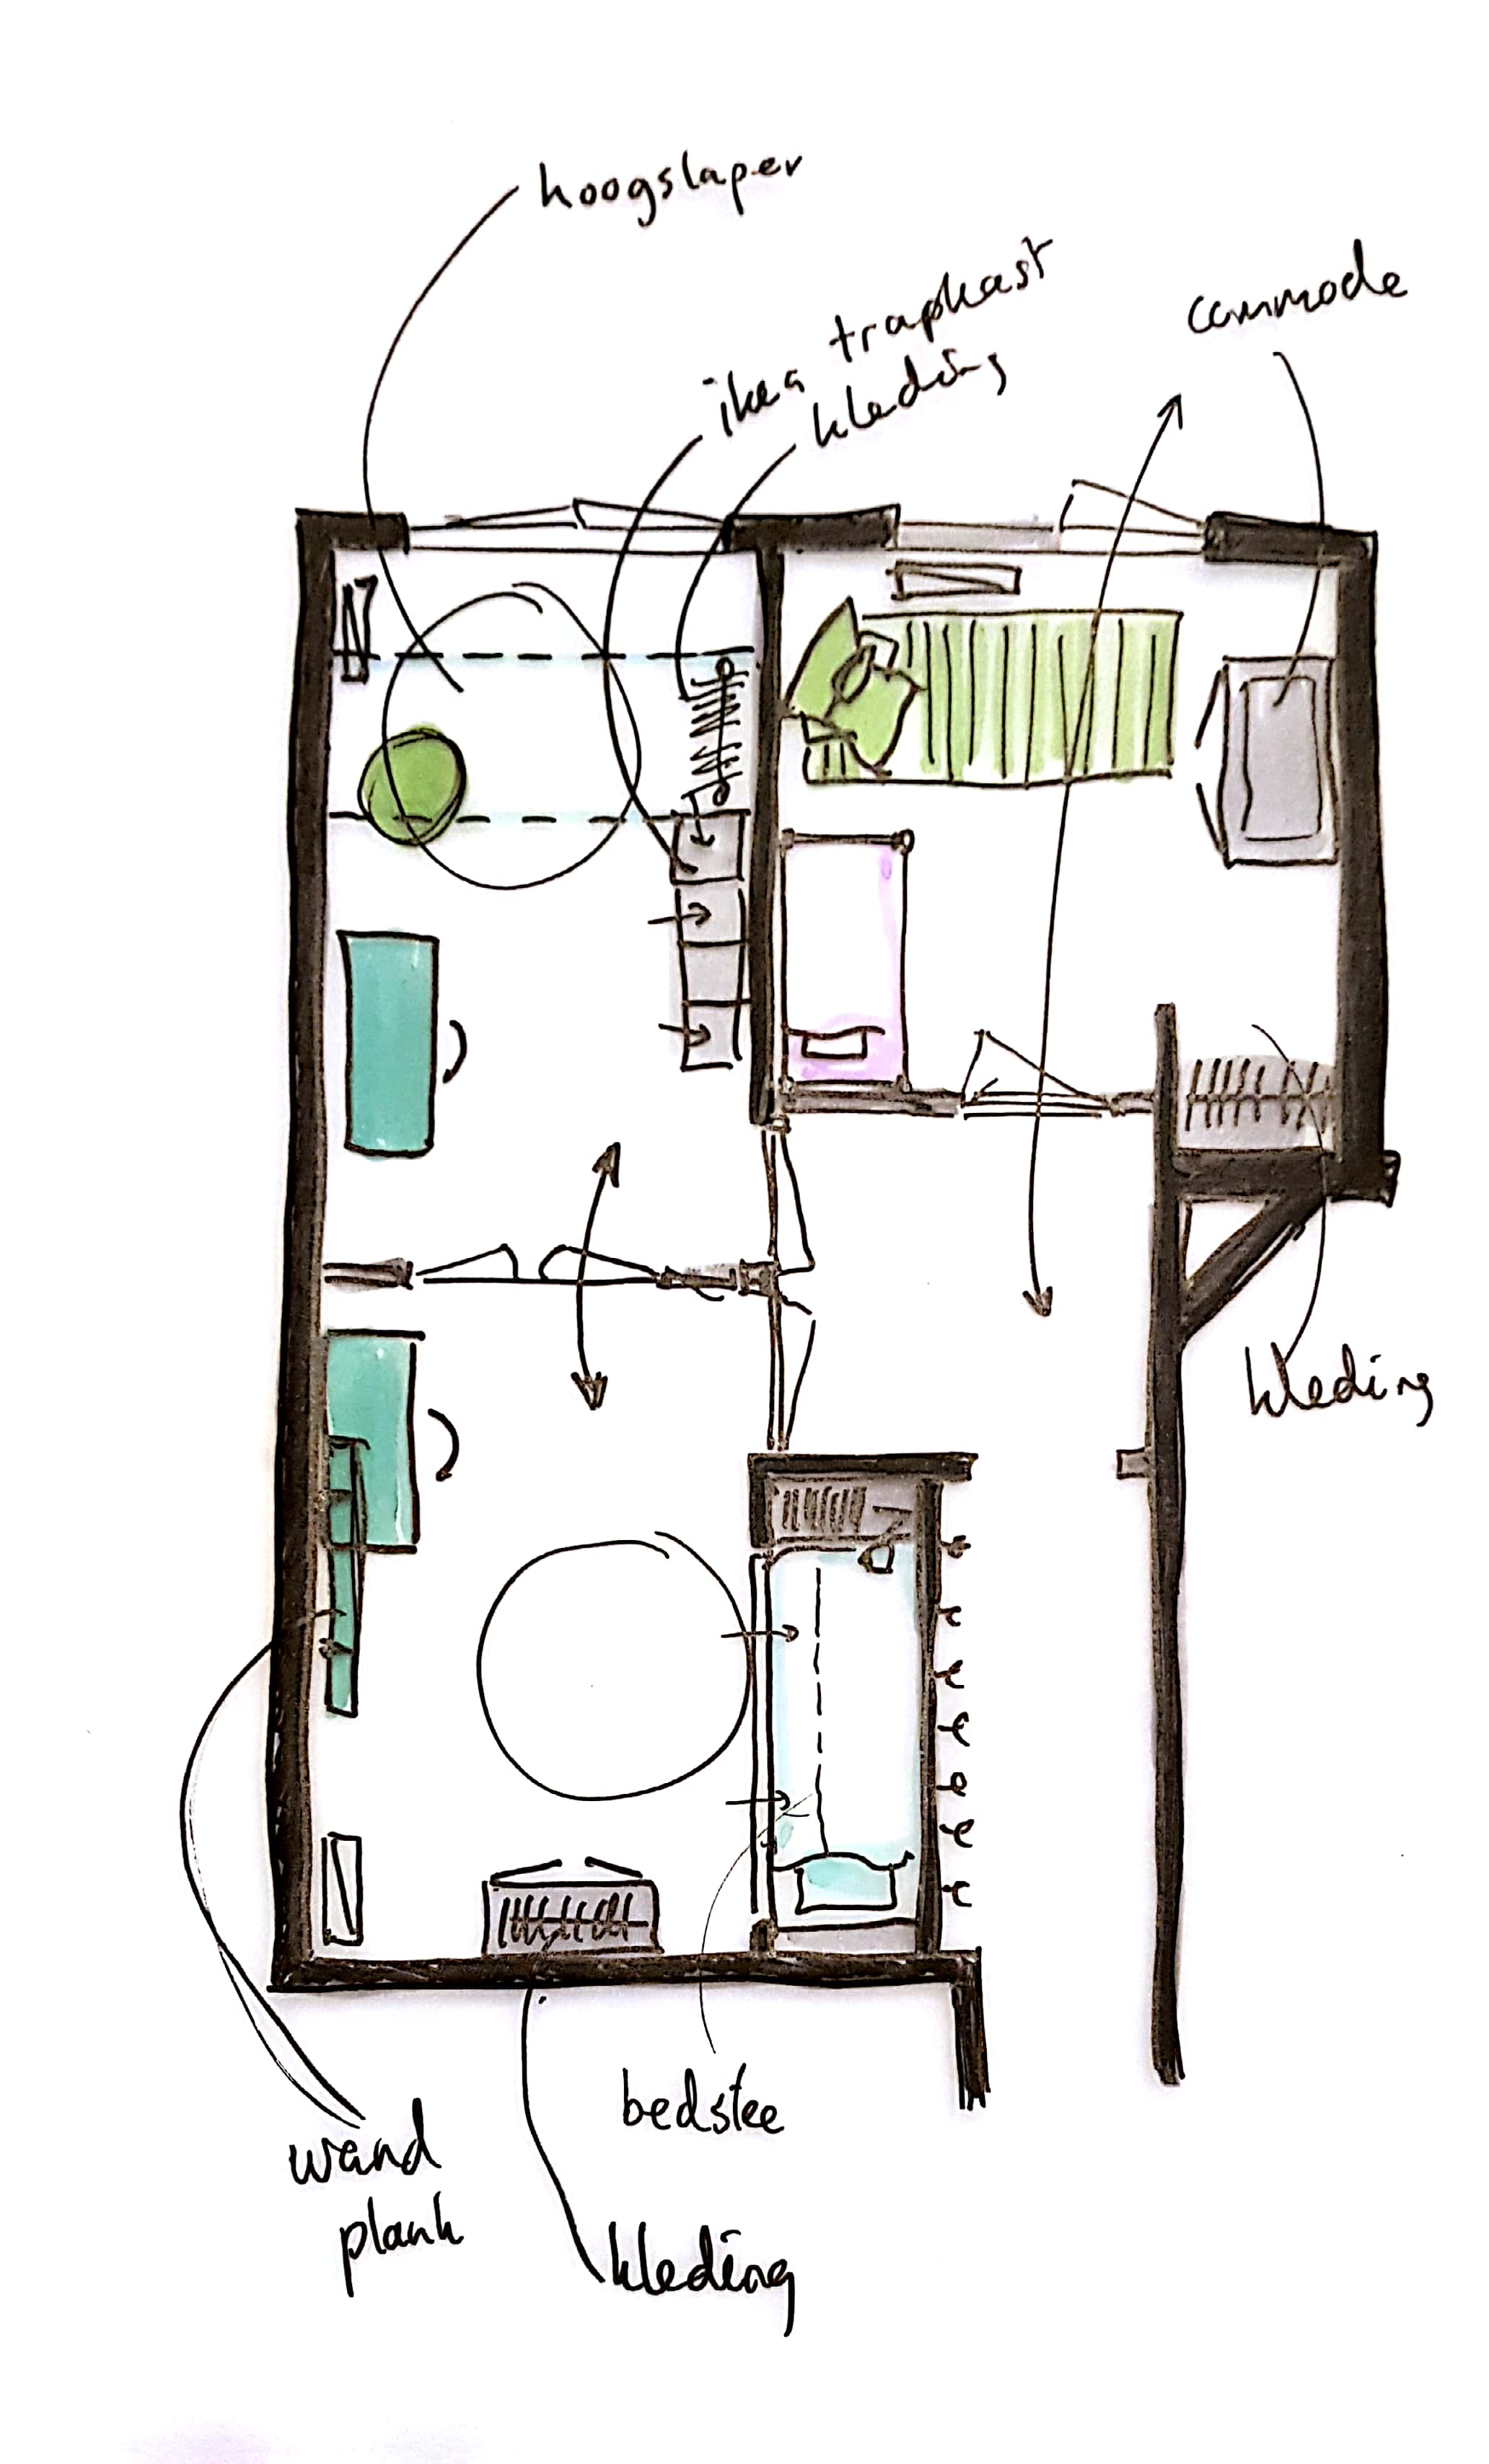 hoogslaper
ikea trapkast
kleding
commode
kleding
bedstee
wand
plank
kleding